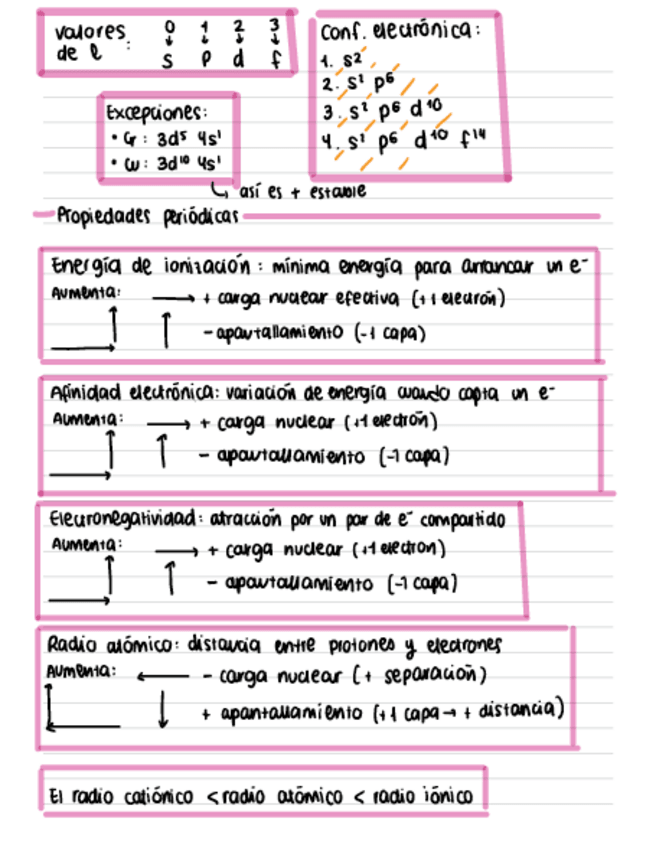 valores de l : 0 1 2 3
↓ ↓ ↓ ↓
s p d f
Conf. electrónica:
1. s²
2. s² p⁶
3. s² p⁶ d¹⁰
4. s² p⁶ d¹⁰ f¹⁴
Excepciones:
• Cr : 3d⁵ 4s¹
• Cu : 3d¹⁰ 4s¹
↳ así es + estable
Propiedades periódicas
Energía de ionización : mínima energía para arrancar un e⁻
Aumenta: → + carga nuclear efectiva (+1 electrón)
↑ - apantallamiento (-1 capa)
Afinidad electrónica: variación de energía cuando capta un e⁻
Aumenta: → + carga nuclear (+1 electrón)
↑ - apantallamiento (-1 capa)
Electronegatividad: atracción por un par de e⁻ compartido
Aumenta: → + carga nuclear (+1 electron)
↑ - apantallamiento (-1 capa)
Radio atómico: distancia entre protones y electrones
Aumenta: ← - carga nuclear (+ separación)
↓ + apantallamiento (+1 capa → + distancia)
El radio catiónico < radio atómico < radio iónico